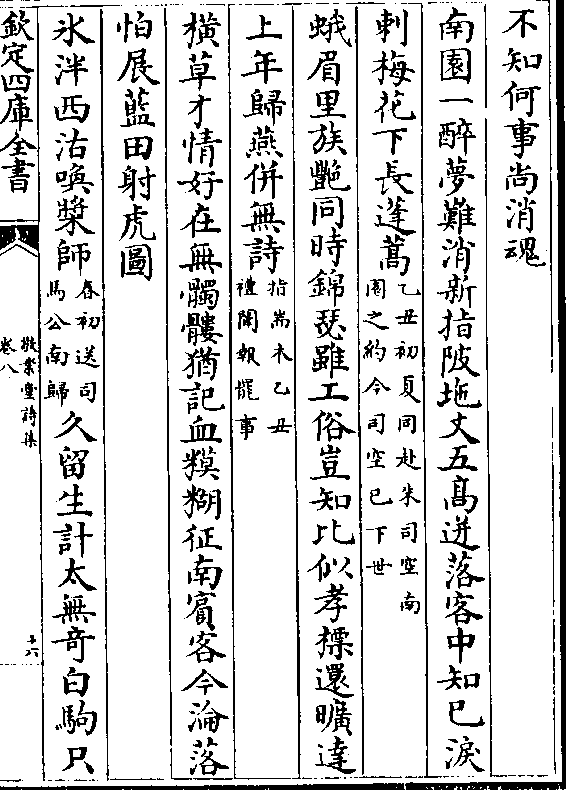 不知何事尚消魂
南園一醉夢難消新指陂地丈五高迸落客中知已淚
刺梅花下長蓬蒿乙丑初夏同赴朱司空南
園之約今司空已下世
蛾眉里族艷同時錦瑟雖工俗豈知比似孝摽還曠達
上年歸燕併無詩指嵩木乙丑
禮闈報罷事
橫草才情好在無髑髏猶記血糢糊征南賓客今淪落
怕展藍田射虎圖
氷泮西沽喚槳師春初送司
馬公南歸久留生計太無竒白駒只
欽定四庫全書
敬業堂詩集
卷八
十六